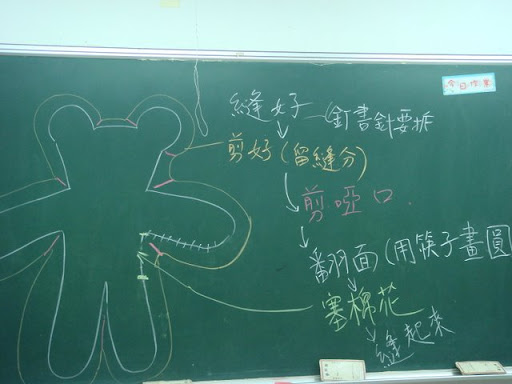 今日作業
縫好—釘書針要拆
剪好(留縫分)
剪啞口
翻面(用筷子畫圓
塞棉花
縫起來